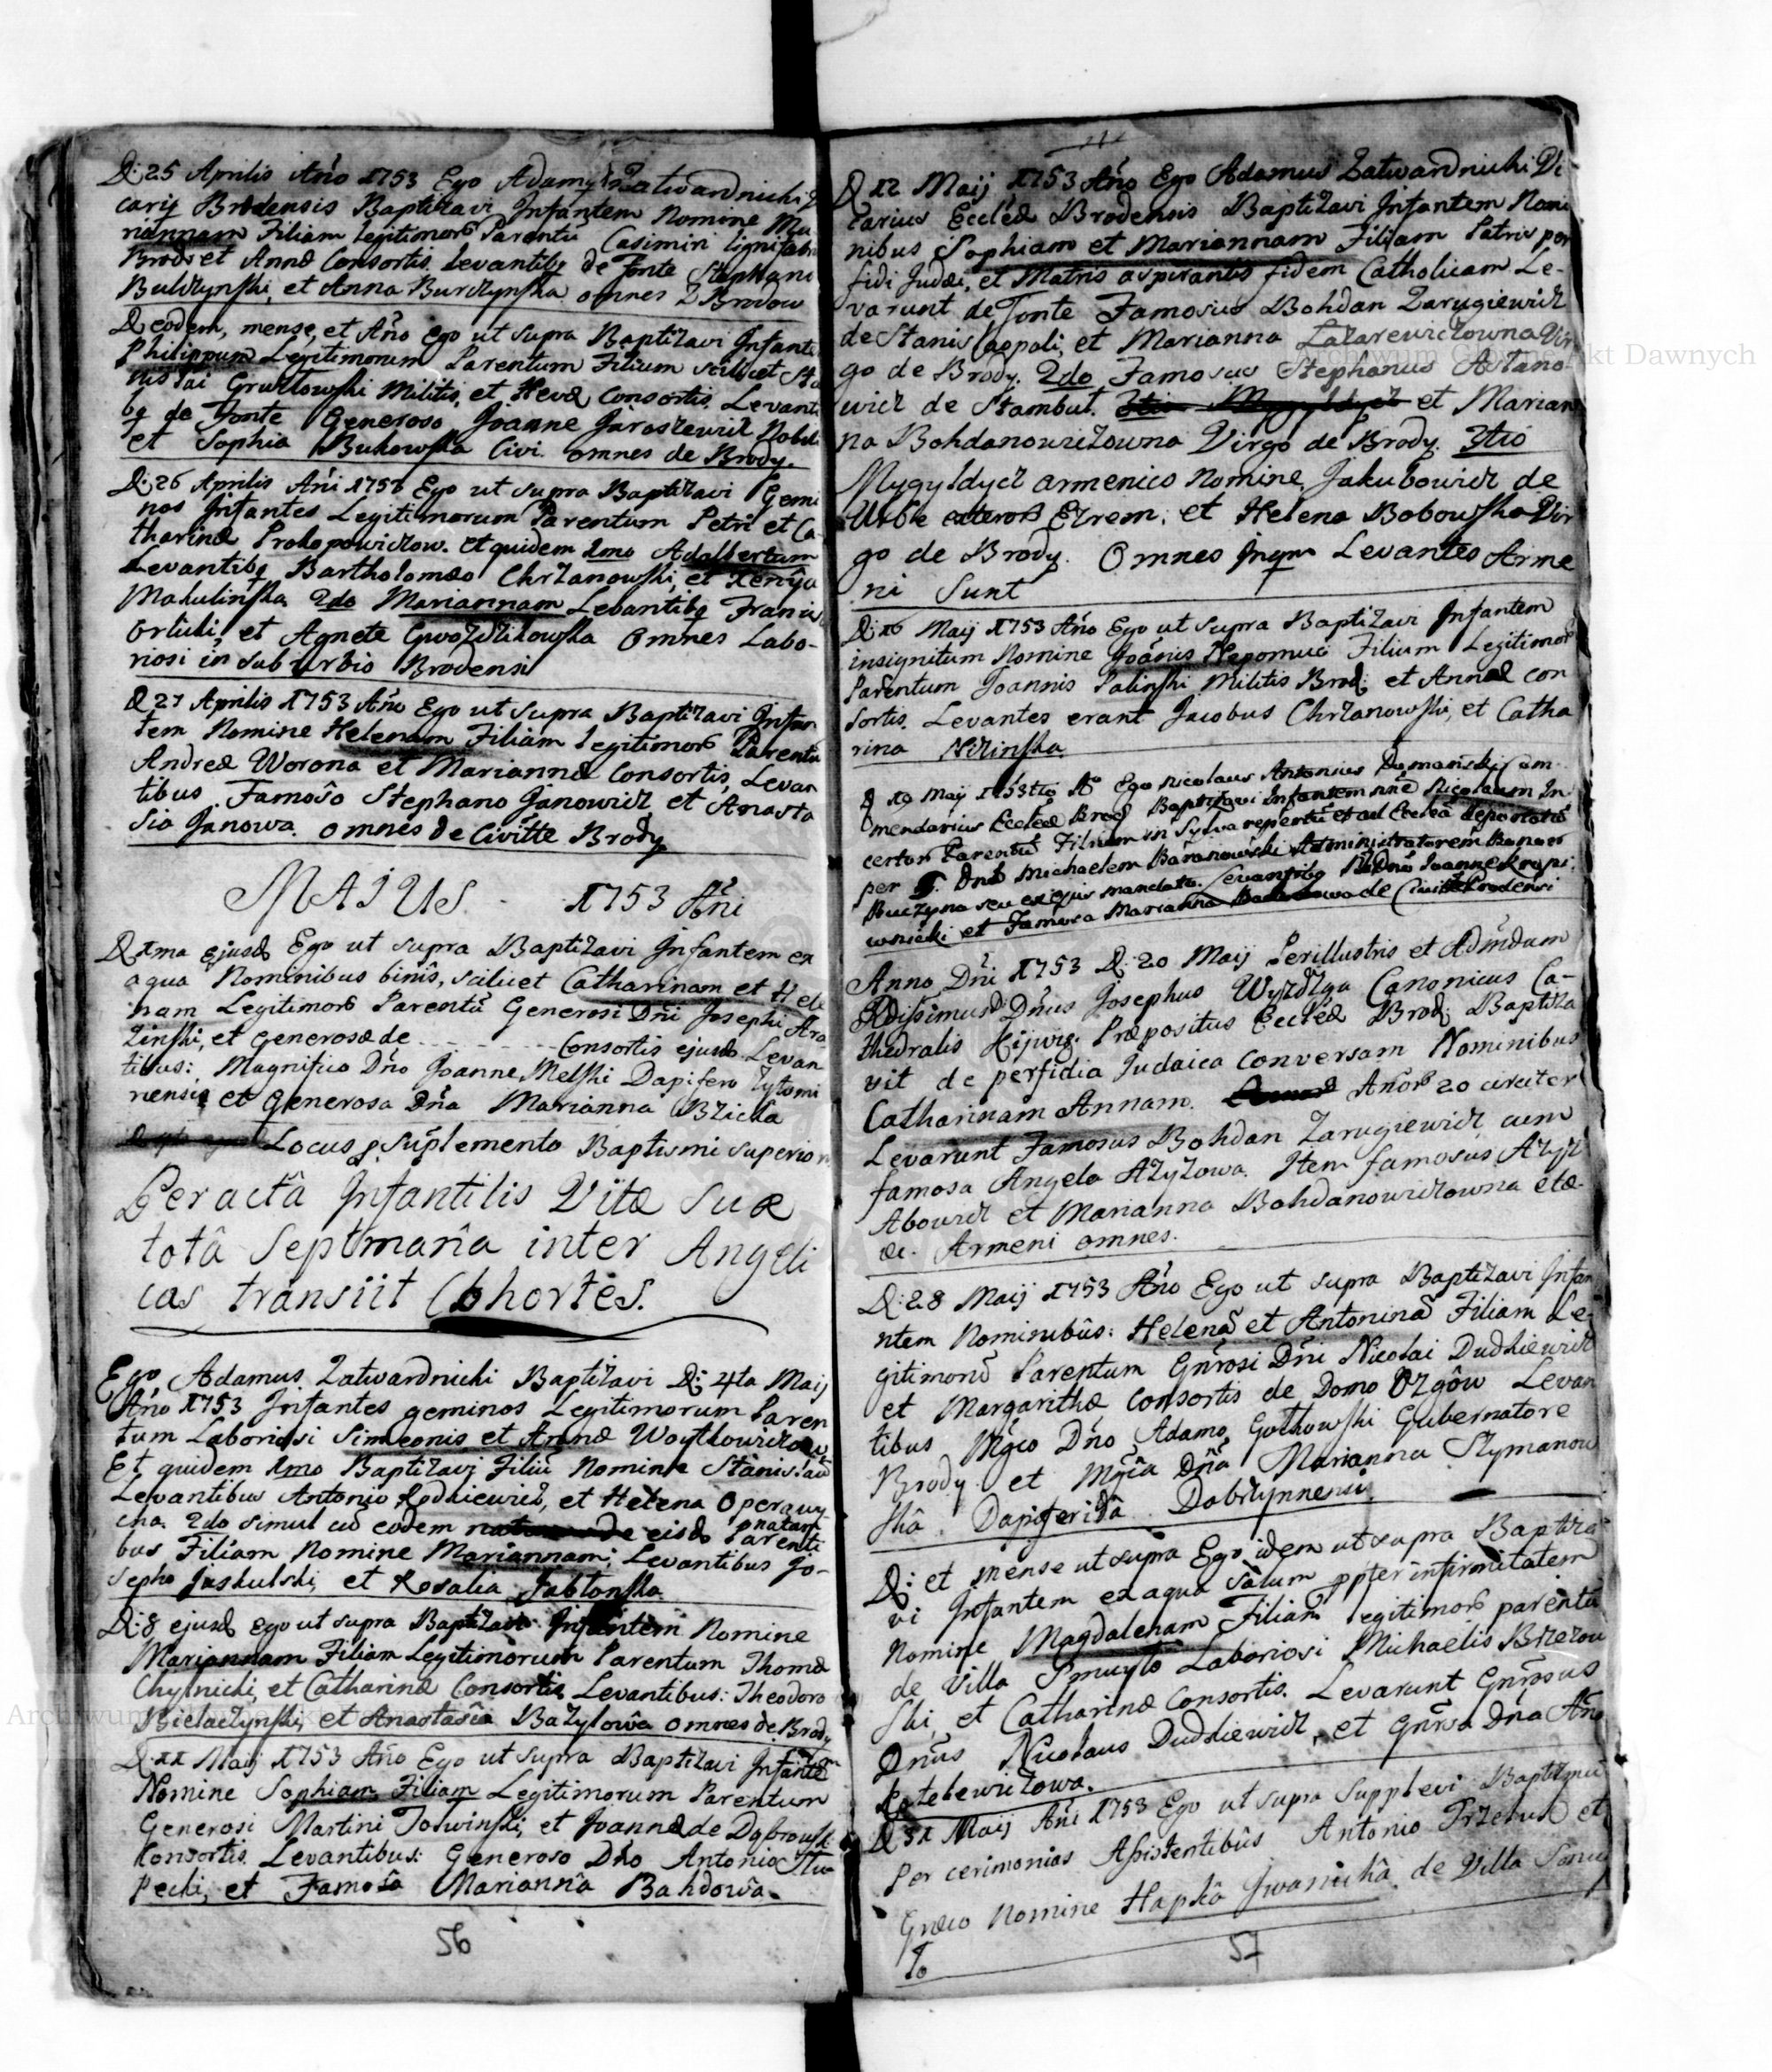 D: 25 Aprilis Año 1753 Ego Adamq Zatwardnicki
cariq Brodensis Baptizavi Infantem Nomine Ma
riannam Filiam legitimorũ Parentũ Casimiri lignifabri
Brod: et Annæ Consortis. Levantibq de Fonte Stephano
Bulczynski, et Anna Burczynska omnes z Brodow
D eodem, mense, et Año Ego ut supra Baptizavi Infante
Philippum Legitimorum Parentum Filium scilicet Sta
nislai Militis, et Hevæ Consortis. Levanti
bq de Fonte Generoso Joanne Jaroszewicz Nobili
et Sophia Bukowska Civi. omnes de Brody.
D: 26 Aprilis Añi 1753 Ego ut supra Baptizavi Gemi
nos Infantes Legitimorum Parentum Petri et Ca-
tharinæ Prokopowiczow. et quidem 1mo Adalbertum
Levantibq Bartholomæo Chrzanowski, et Xenija
Makulinska 2do Mariannam Levantibq Francis
Orlicki, et Agnete Gwozdzikowska Omnes Labo-
riosi in suburbio Brodensi
D 27 Aprilis 1753 Año Ego ut supra Baptizavi Infan
tem Nomine Helenam Filiam legitimorũ Parentũ
Andreæ Worona et Mariannæ Consortis, Levan
tibus Famoso Stephano Janowicz et Anasta
sia Janowa. omnes de Civitte Brody
MAIUS. 1753 Añi
D 1ma ejusd Ego ut supra Baptizavi Infantem ex
aqua Nominibus binis, scilicet Catharinam et Hele
nam Legitimorũ Parentũ Generosi Dñi Josephi
zinski, et Generosæ de - - - - - - - - Consortis ejusd. Levan
tibus: Magnifico Dño Joanne Melski Dapifero Zytomi
riensis et Generosa Dña Marianna Bzicka
Locus p. Suplemento Baptismi superio
Peractâ Infantilis Vitæ suæ
totâ Septmanâ inter Angeli
cas transiit Cohortes.
Ego Adamus Zatwardnicki Baptizavi D: 4ta Maij
Año 1753 Infantes geminos Legitimorum Paren
tum Laboriosi Simeonis et Annæ Woytkowiczow
Et quidem 1mo Baptizavi Filiũ Nomine Stanislaũ
Levantibus Antonio Rodkiewicz, et Helena Operawy
cha. 2do simul cũ eodem de eisd gnatam Parenti
bus Filiam Nomine Mariannam; Levantibus Jo-
sepho Juskulski, et Rosalia Jablonska
D: 8 ejusd Ego ut supra Baptizavi Infantem Nomine
Mariannam Filiam Legitimorum Parentum Thomæ
Chylnicki, et Catharinæ Consortis Levantibus: Theodoro
Bielaczynski, et Anastasia Bazylowa omnes de Brody
D: 11 Maij 1753 Año Ego ut supra Baptizavi Infantem
Nomine Sophiam Filiam Legitimorum Parentum
Generosi Martini Toswinski, et Joannæ de Dąbrowski
Consortis. Levantibus: Generoso Dño Antonio Stu
pecki, et Famosa Marianna Bahdowa.
56
D 12 Maij 1753 Año Ego Adamus Zatwardnicki Vi
carius Ecclæ Brodensis Baptizavi Infantem Nomi
nibus Sophiam et Mariannam Filiam Patris per
fidi Judæi, et Matris aspirantis fidem Catholicam Le-
varunt de Fonte Famosus Bohdan Zarugiewicz
de Stanislaopoli, et Marianna Lazarewiczowna Vir
go de Brody. 2do Famosus Stephanus Astano
wicz de Stambul. et Marian
na Bohdanowiczowna Virgo de Brody. 3tio
Mygyldycz armenico Nomine, Jakubowicz de
Urbe Ezrem, et Helena Bobowska Vir
go de Brody. Omnes Levantes Arme
ni Sunt
D: 16 Maij 1753 Año Ego ut supra Baptizavi Infantem
insignitum Nomine Joannis Nepomuci Filium Legitimorũ
Parentum Joannis Palinski Militis Brod: et Annæ con
sortis. Levantes erant Jacobus Chrzanowski, et Catha
rina Nizinska.
D 19 Maij 1753tio Aº Ego Nicolaus Antonius Domanski Com
mendarius Ecclæ Brod Baptizavi Infantem nñe Nicolaum In
certorũ Parentũ Filium in Sylva repertũ et ad Ecclã deportatũ
per P. Dnũ Michaelem Baranowski Administratorem Bonorũ
Buczyna seu ex ejus mandato. Levantibq Dno Joanne Kropi
wnicki et Famosa Marianna de Civitte Brodensi
Anno Dñi 1753 D: 20 Maij Perillustris et Admdum
Rdissimus Dñus Josephus Wyzdzga Canonicus Ca-
thedralis Kijovi. Præpositus Ecclæ Brod: Baptiza
vit de perfidia Judaica conversam Nominibus
Catharinam Annam. Añorũ 20 circiter
Levarunt Famosus Bohdan Zarugiewicz cum
famosa Angela Azyzowa. Item famosus Azyz
Abowicz et Marianna Bohdanowiczowna etc-
æ. Armeni omnes.
D: 28 Maij 1753 Año Ego ut supra Baptizavi Infan
ntem Nominibûs: Helenã et Antoninã Filiam Le-
gitimorũ Parentum Gñrosi Dñi Nicolai Dudkiewicz
et Margarithæ Consortis de Domo Ozgôw Levan
tibus Mgco Dño Adamo Gutkowski Gubernatore
Brody et Mgĩa Dña Marianna Szymanow
ska. Dapiferidâ Dobrzynnensi.
D: et mense ut supra Ego idem ut supra Baptiza
vi Infantem ex aqua sâlum ppter infirmitatem
Nomine Magdalenam Filiam legitimorũ parentũ
de Villa Smuylo Laboriosi Michaelis Brzezow
ski, et Catharinæ Consortis. Levarunt Gñrosus
Dñus Nicolaus Dudkiewicz, et Gñrsa Dña Añа
Kotelewiczowa.
D 31 Maij Añi 1753 Ego ut supra Supplevi Baptizmũ
Per cerimonias Assistentibus Antonio Przebus et
Græco Nomine Hapka Jwanicha. de Villa Smuy
lo
57
Archiwum Główne Akt Dawnych